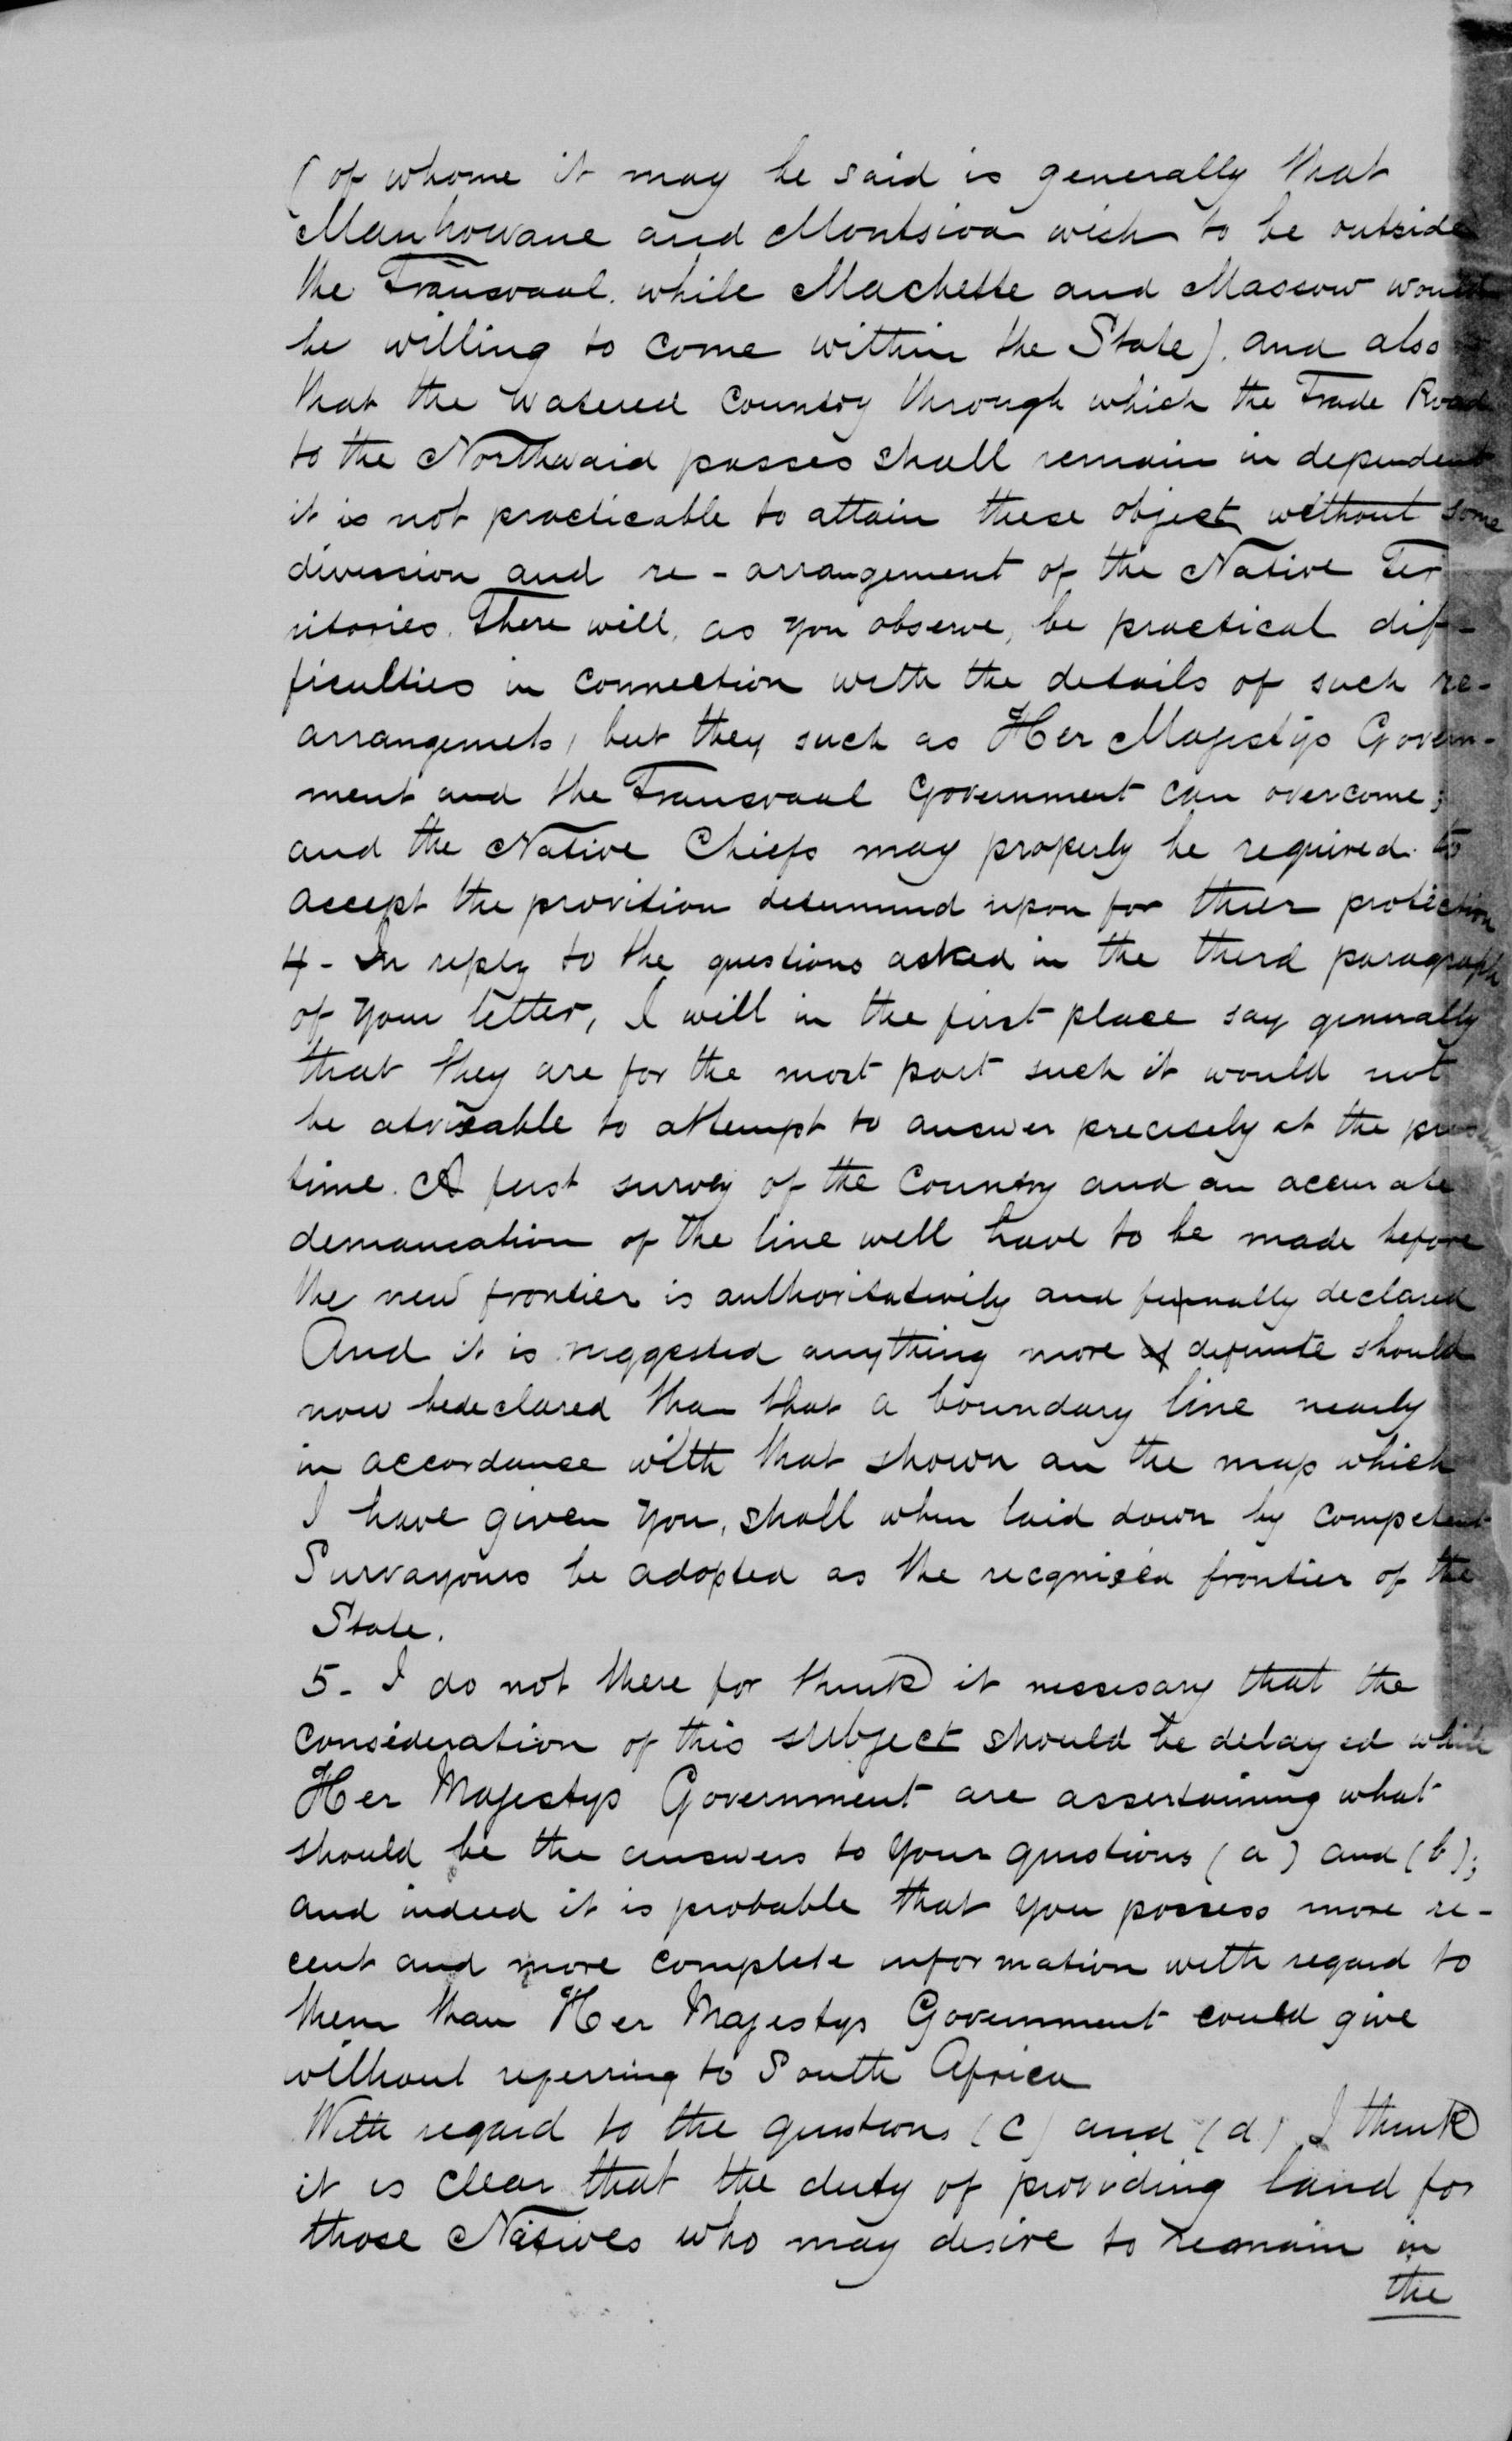 ( of whome it may be said is generally that
Mankowane and Montsioa wish to be outside
the Transvaal. while Machette and Massow would
be willing to come within the State). and also
that the watered Country through which the Trade Road
to the Northward passes shall remain in dependent
it is not practicable to attain these object without some
divission and re-arrangement of the Native Ter
ritories. There will, as you observe, be practical dif-
ficulties in connection with the details of such re-
arrangemets, but they such as Her Majestys Govern-
ment and the Transvaal Government can overcome;
and the Native Chiefs may properly be required to
accept the provition detemmind upon for thier protection
4 - In reply to the questions asked in the third paragraph
of your letter, I will in the first place say generally
that they are for the most part such it would not
be advisable to attempt to answer precisely at the present
time. A first survey of the Country and an accurate
demarcation of the line will have to be made before
the new frontier is authoritatively and formally declared
And it is suggested anything more definite should
now bedeclared than that a boundary line nearly
in accordance with that shown an the map which
I have given you, shall when laid down by competent
Survayours be adopted as the recgnised frontier of the
State.
5 - I do not there for think it nessesary that the
consideration of this subject should be delayed while
Her Majestys Government are assertaining what
should be the answers to your questions (a) and (b);
and indeed it is probable that you possess more re-
cent and more complete information with regard to
them than Her Majestys Government could give
without referring to South Africa
With regard to the questions (c) and (d) I think
it is clear that the duty of providing land for
those Natives who may desire to remain in
the